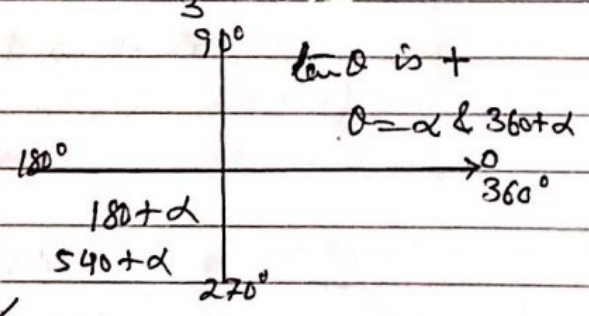 3
90°
tan θ is +
θ = α & 360+α
180°
0
360°
180+α
540+α
270°